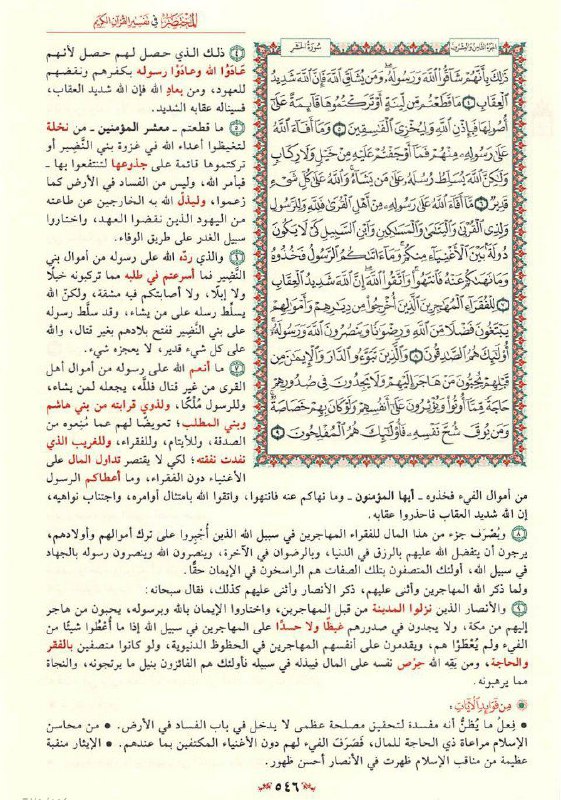 المختصر في تفسير القرآن الكريم
الجزء الثامن والعشرون
سورة الحشر
ذَٰلِكَ بِأَنَّهُمْ شَآقُّوا۟ ٱللَّهَ وَرَسُولَهُۥ وَمَن يُشَآقِّ ٱللَّهَ فَإِنَّ ٱللَّهَ شَدِيدُ
ٱلْعِقَابِ ٤ مَا قَطَعْتُم مِّن لِّينَةٍ أَوْ تَرَكْتُمُوهَا قَآئِمَةً عَلَىٰٓ
أُصُولِهَا فَبِإِذْنِ ٱللَّهِ وَلِيُخْزِىَ ٱلْفَٰسِقِينَ ٥ وَمَآ أَفَآءَ ٱللَّهُ
عَلَىٰ رَسُولِهِۦ مِنْهُمْ فَمَآ أَوْجَفْتُمْ عَلَيْهِ مِنْ خَيْلٍ وَلَا رِكَابٍ
وَلَٰكِنَّ ٱللَّهَ يُسَلِّطُ رُسُلَهُۥ عَلَىٰ مَن يَشَآءُ وَٱللَّهُ عَلَىٰ كُلِّ شَىْءٍ
قَدِيرٌ ٦ مَّآ أَفَآءَ ٱللَّهُ عَلَىٰ رَسُولِهِۦ مِنْ أَهْلِ ٱلْقُرَىٰ فَلِلَّهِ وَلِلرَّسُولِ
وَلِذِى ٱلْقُرْبَىٰ وَٱلْيَتَٰمَىٰ وَٱلْمَسَٰكِينِ وَٱبْنِ ٱلسَّبِيلِ كَىْ لَا يَكُونَ
دُولَةًۢ بَيْنَ ٱلْأَغْنِيَآءِ مِنكُمْ وَمَآ ءَاتَىٰكُمُ ٱلرَّسُولُ فَخُذُوهُ
وَمَا نَهَىٰكُمْ عَنْهُ فَٱنتَهُوا۟ وَٱتَّقُوا۟ ٱللَّهَ إِنَّ ٱللَّهَ شَدِيدُ ٱلْعِقَابِ
٧ لِلْفُقَرَآءِ ٱلْمُهَٰجِرِينَ ٱلَّذِينَ أُخْرِجُوا۟ مِن دِيَٰرِهِمْ وَأَمْوَٰلِهِمْ
يَبْتَغُونَ فَضْلًا مِّنَ ٱللَّهِ وَرِضْوَٰنًا وَيَنصُرُونَ ٱللَّهَ وَرَسُولَهُۥٓ
أُو۟لَٰٓئِكَ هُمُ ٱلصَّٰدِقُونَ ٨ وَٱلَّذِينَ تَبَوَّءُو ٱلدَّارَ وَٱلْإِيمَٰنَ مِن
قَبْلِهِمْ يُحِبُّونَ مَنْ هَاجَرَ إِلَيْهِمْ وَلَا يَجِدُونَ فِى صُدُورِهِمْ
حَاجَةً مِّمَّآ أُوتُوا۟ وَيُؤْثِرُونَ عَلَىٰٓ أَنفُسِهِمْ وَلَوْ كَانَ بِهِمْ خَصَاصَةٌ
وَمَن يُوقَ شُحَّ نَفْسِهِۦ فَأُو۟لَٰٓئِكَ هُمُ ٱلْمُفْلِحُونَ ٩
٤ ذلك الذي حصل لهم حصل لأنهم
عَادَوُا الله وعادَوْا رسوله بكفرهم ونقضهم
للعهود، ومن يعادِ الله فإن الله شديد العقاب،
فسيناله عقابه الشديد.
٥ ما قطعتم ـ معشر المؤمنين ـ من نخلة
لتغيظوا أعداء الله في غزوة بني النَّضِير أو
تركتموها قائمة على جذوعها لتنتفعوا بها ـ
فبأمر الله، وليس من الفساد في الأرض كما
زعموا، وليذلّ الله به الخارجين عن طاعته
من اليهود الذين نقضوا العهد، واختاروا
سبيل الغدر على طريق الوفاء.
٦ والذي ردّه الله على رسوله من أموال بني
النَّضِير فما أسرعتم في طلبه مما تركبونه خيلًا
ولا إبلًا، ولا أصابتكم فيه مشقة، ولكنّ الله
يسلّط رسله على من يشاء، وقد سلّط رسوله
على بني النَّضِير ففتح بلادهم بغير قتال، والله
على كل شيء قدير، لا يعجزه شيء.
٧ ما أنعم الله على رسوله من أموال أهل
القرى من غير قتال فللَّه، يجعله لمن يشاء،
وللرسول مُلْكًا، ولذوي قرابته من بني هاشم
وبني المطلب؛ تعويضًا لهم عما مُنِعوه من
الصدقة، وللأيتام، وللفقراء، وللغريب الذي
نفدت نفقته؛ لكي لا يقتصر تداول المال على
الأغنياء دون الفقراء، وما أعطاكم الرسول
من أموال الفيء فخذوه ـ أيها المؤمنون ـ وما نهاكم عنه فانتهوا، واتقوا الله بامتثال أوامره، واجتناب نواهيه،
إن الله شديد العقاب فاحذروا عقابه.
٨ ويُصْرَف جزء من هذا المال للفقراء المهاجرين في سبيل الله الذين أُجبِروا على ترك أموالهم وأولادهم،
يرجون أن يتفضل الله عليهم بالرزق في الدنيا، وبالرضوان في الآخرة، وينصرون الله وينصرون رسوله بالجهاد
في سبيل الله، أولئك المتصفون بتلك الصفات هم الراسخون في الإيمان حقًّا.
ولما ذكر الله المهاجرين وأثنى عليهم، ذكر الأنصار وأثنى عليهم كذلك، فقال سبحانه:
٩ والأنصار الذين نزلوا المدينة من قبل المهاجرين، واختاروا الإيمان بالله وبرسوله، يحبون من هاجر
إليهم من مكة، ولا يجدون في صدورهم غيظًا ولا حسدًا على المهاجرين في سبيل الله إذا ما أُعْطُوا شيئًا من
الفيء ولم يُعْطَوْا هم، ويقدمون على أنفسهم المهاجرين في الحظوظ الدنيوية، ولو كانوا متصفين بالفقر
والحاجة، ومن يَقِه الله حِرْص نفسه على المال فيبذله في سبيله فأولئك هم الفائزون بنيل ما يرتجونه، والنجاة
مما يرهبونه.
من فوائد الآيات:
• فِعلُ ما يُظنُّ أنه مفسدة لتحقيق مصلحة عظمى لا يدخل في باب الفساد في الأرض. • من محاسن
الإسلام مراعاة ذي الحاجة للمال، فصَرَفَ الفيء لهم دون الأغنياء المكتفين بما عندهم. • الإيثار منقبة
عظيمة من مناقب الإسلام ظهرت في الأنصار أحسن ظهور.
٥٤٦